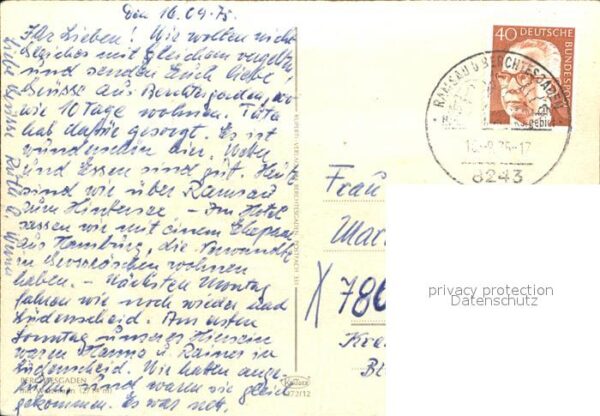 Den 16.09.75
Ihr Lieben! Wir wollen nicht
Gleiches mit Gleichem vergelten
und senden Euch liebe
Grüsse aus Berchtesgaden, wo
wie 10 Tage wohnen. Tata
hab dafür gesorgt. Es ist
wunderschön hier. Wetter
und Essen sind gut. Heute
sind wir über Ramsau
zum Hintersee - Im Hotel
sassen wir mit einem Ehepaar
aus Hamburg, die Verwandte
in wohnen
haben. - Nächsten Montag
fahren wir noch wieder nach
Lüdenscheid. Am ersten
Sonntag unseres Hierseins
waren Hanna u. Rainer in
Lüdenscheid. Wir hatten ange-
rufen, sind waren sie gleich
gekommen. Es war nett.
Liebe Grüsse
BERCHTESGADEN
40 DEUTSCHE
BUNDESPOST
RAMSAU b BERCHTESGADEN
75-17
8243
Frau
X 786
privacy protection
Datenschutz